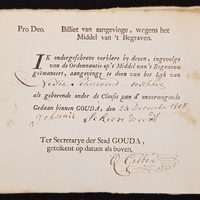 Pro Deo. Billiet van aangevinge, wegens het
Middel van 't Begraven.
IK ondergeschreve verklare by dezen, ingevolge
van de Ordonnantie op 't Middel van 't Begraven
geëmaneert, aangevinge te doen van het Lyk van
als gehoorende onder de Classis pan d' onvermogende
Gedaan binnen GOUDA, den 24 December
Johannis
Ter Secretarye der Stad GOUDA,
geteikent op datum als boven.